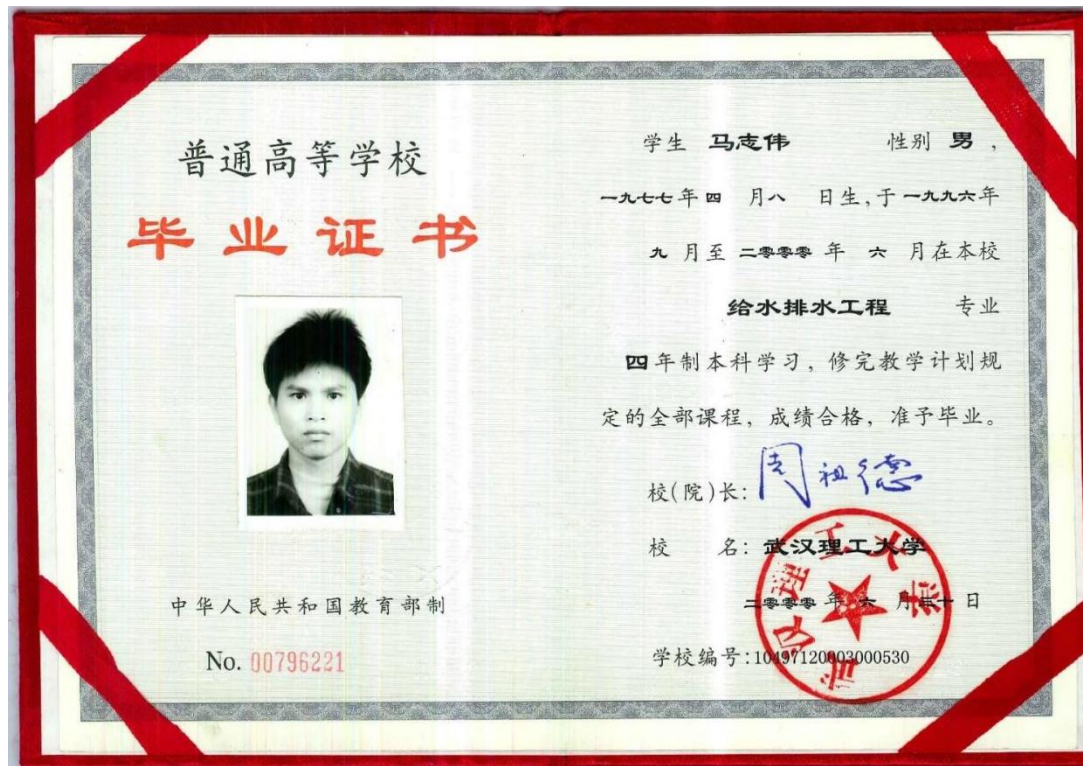 普通高等学校
毕业证书
中华人民共和国教育部制
No. 00796221
学生 马志伟 性别 男,
一九七七年四 月八 日生,于一九九六年
九 月至 二零零零 年 六 月在本校
给水排水工程 专业
四年制本科学习,修完教学计划规
定的全部课程,成绩合格,准予毕业。
校(院)长: 周祖德
校 名: 武汉理工大学
二零零零 年 六 月三十 日
学校编号:10497120003000530
武汉理工大学